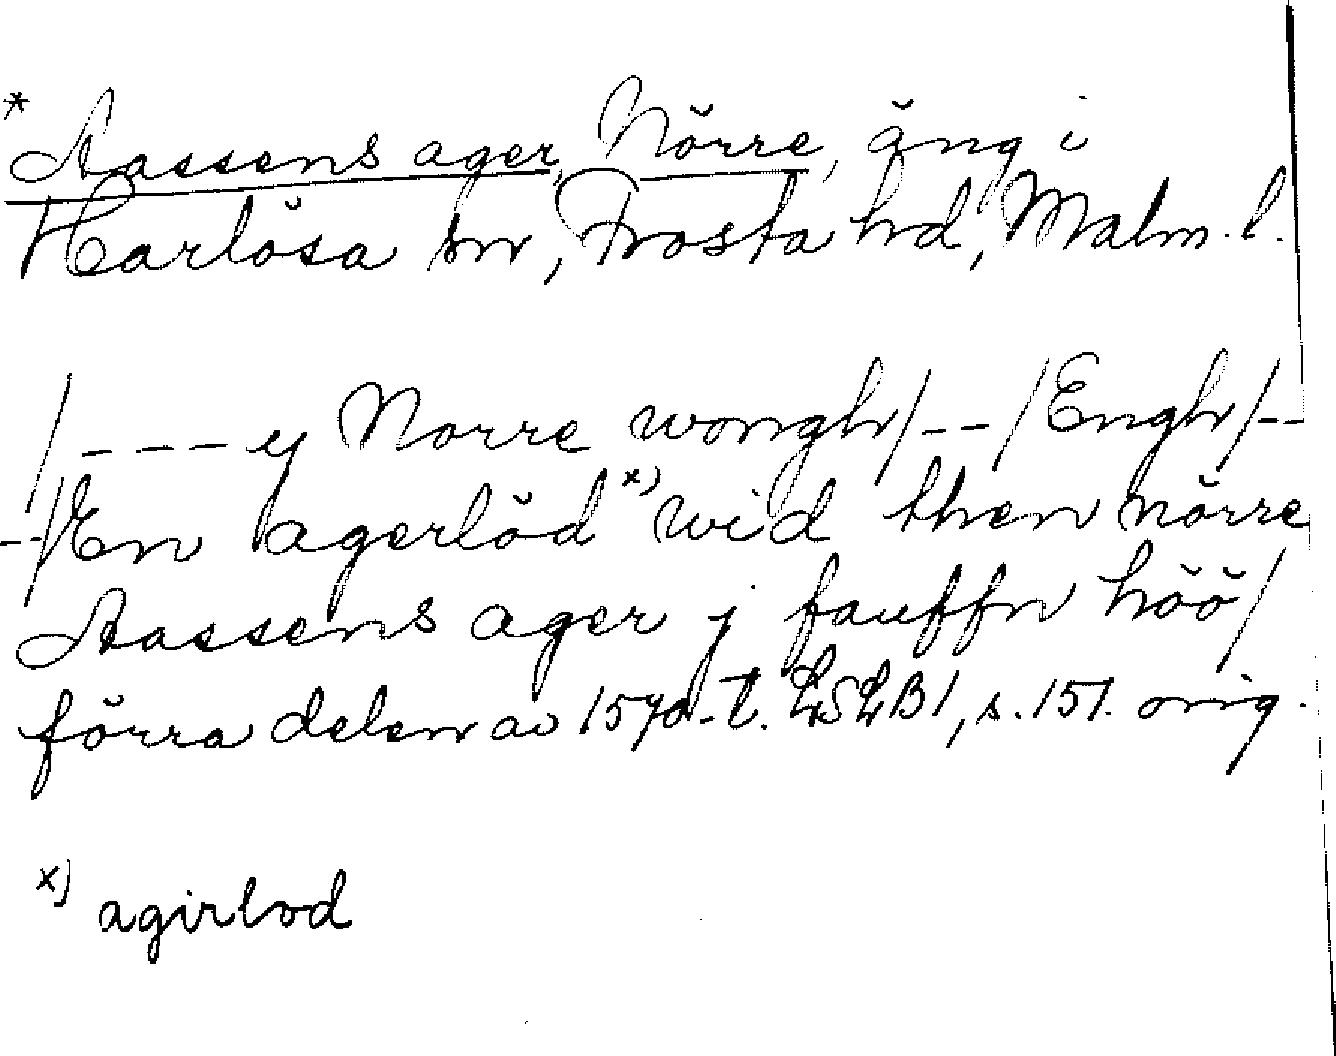 * Aassens ager, Nörre, äng i
Harlösa sn, Frosta hd, Malm. l.
/---- y Norre wongh/--/Engh/--
--/En agerlöd x) wid then nörre
Aassens ager j fauffn höö/
förra delen av 1570-t. LSLB1, s. 151. orig.
x) agirlod